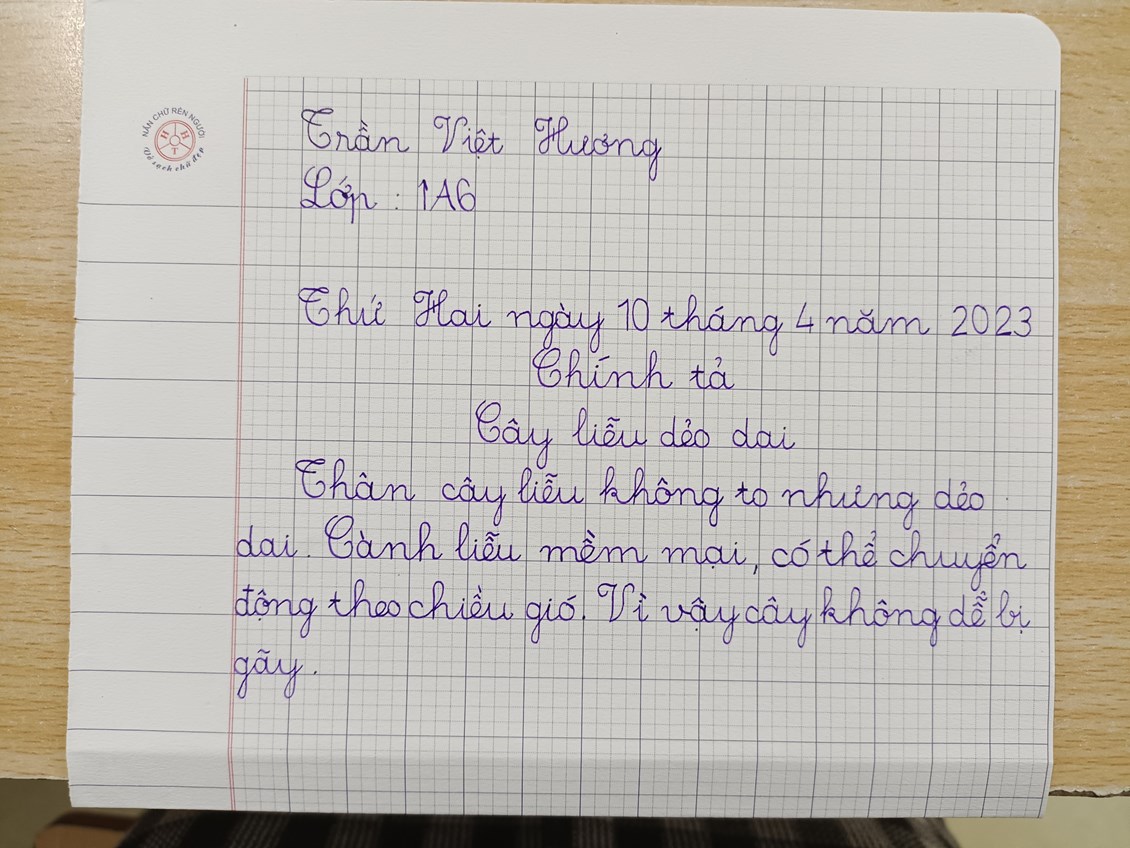 NẮN CHỮ RÈN NGƯỜI
H H
T
Vở sạch chữ đẹp
Trần Việt Hương
Lớp : 1A6
Thứ Hai ngày 10 tháng 4 năm 2023
Chính tả
Cây liễu dẻo dai
Thân cây liễu không to nhưng dẻo
dai. Cành liễu mềm mại, có thể chuyển
động theo chiều gió. Vì vậy cây không dễ bị
gãy.